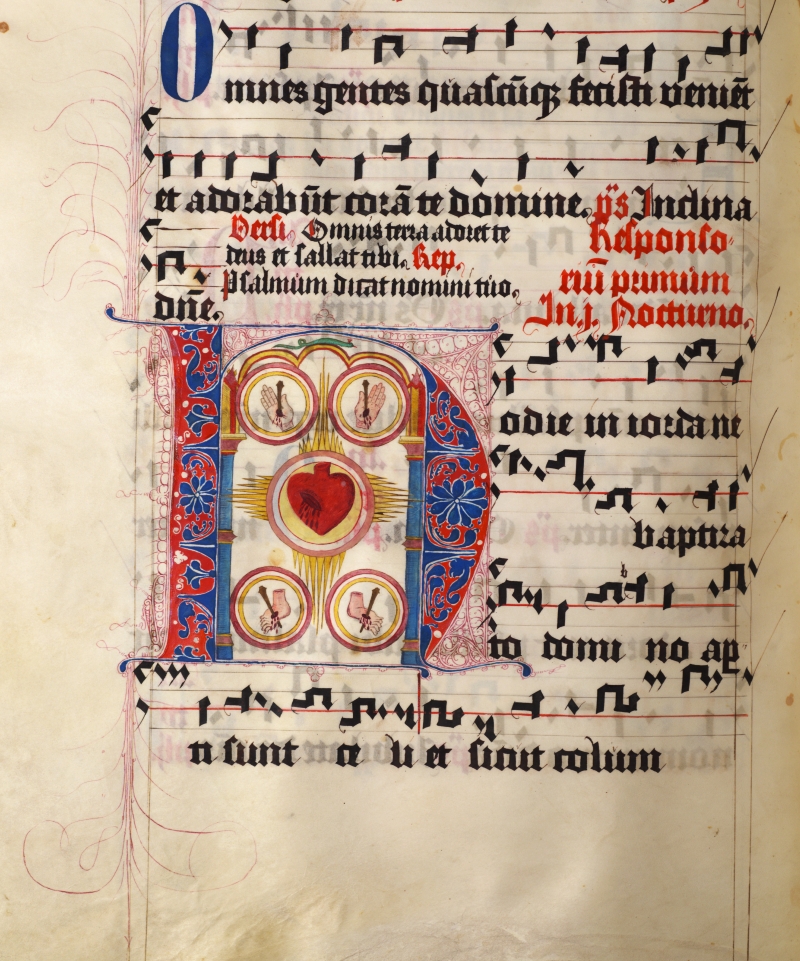 Omnes gentes quascūq; fecisti veniēt
et adorabūt corā te domine. p̄s Inclina
Versi. Omnis terra adoret te Responso-
deus et sallat tibi. Rep. riū primum
Psalmum dicat nomini tuo. In .j. Nocturno.
dn̄e.
Hodie in iordane
baptiza
to domi no ap
ti sunt ce li et sicut colum